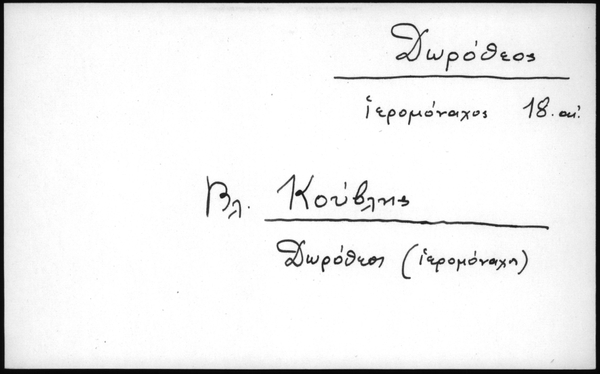 Δωρόθεος
ἱερομόναχος 18. αἰ.
Βλ. Κούβλης
Δωρόθεος (ἱερομόναχη)